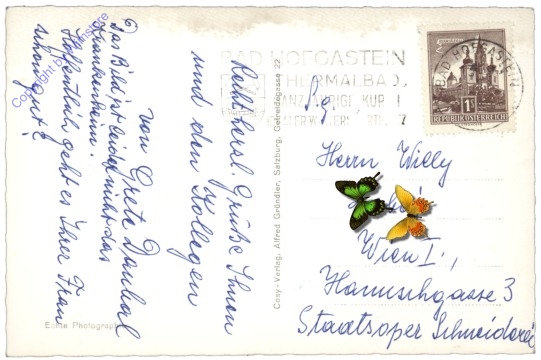 Recht herzl. Grüße Ihnen
und den Kollegen
von Grete
Das Bild ist leider nicht das
Krankenheim.
Hoffentlich geht es Ihrer Frau
schon gut?
BAD HOFGASTEIN
THERMALBAD,
KUR
BAD HOFGASTEIN
REPUBLIK ÖSTERREICH
Herrn Willy
Wien I.,
Hanuschgasse 3
Staatsoper Schneiderei
Cosy-Verlag, Alfred Gründler, Salzburg, Getreidegasse 22
Echte Photographie
Copyright by